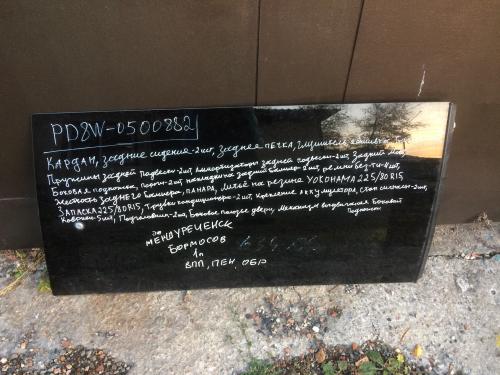 PD8W-0500882
КАРДАН, Задние сидение-2шт, Заднее ПЕЧКА,
Пружины задней Подвески-2шт, Амортизаторы задней Подвески-2шт, Задний мост,
Боковая подножка, накладки на задний Бампер-2шт, ремни без-ти-4шт
Жесткость ЗАДНЕГО Бампера, ПАНАРА, Литьё на резине YOKOHAMA 225/80R15
ЗАПАСКА 225/80R15, Трубки кондиционера-2шт, Крепление Аккумулятора, Стоп сигнал-2шт,
Коврики-5шт, Подголовник-2шт, Боковое двери, Механизм Боковой
Подножки
МЕЖДУРЕЧЕНСК
БОРМОСОВ
1п
ВПП, ПЕН, ОБР